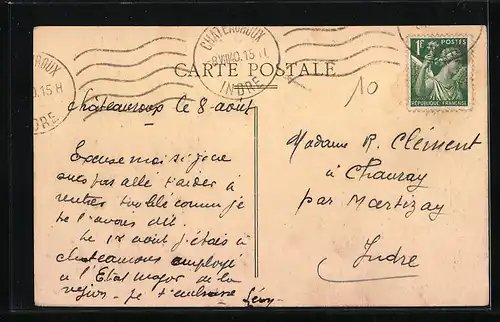 CHATEAUROUX
8 VIII 40. 15 H
INDRE
CARTE POSTALE
1F POSTES
RÉPUBLIQUE FRANÇAISE
10
Châteauroux le 8 août
Excuse moi si je ne
suis pas allé t'aider à
rentrer ton blé comme je
te l'avais dit.
Le 1er août j'étais à
chateauroux employé
à l'Etat major de la
région. je t'embrasse
Madame R. Clément
à Chauray
par Martizay
Indre